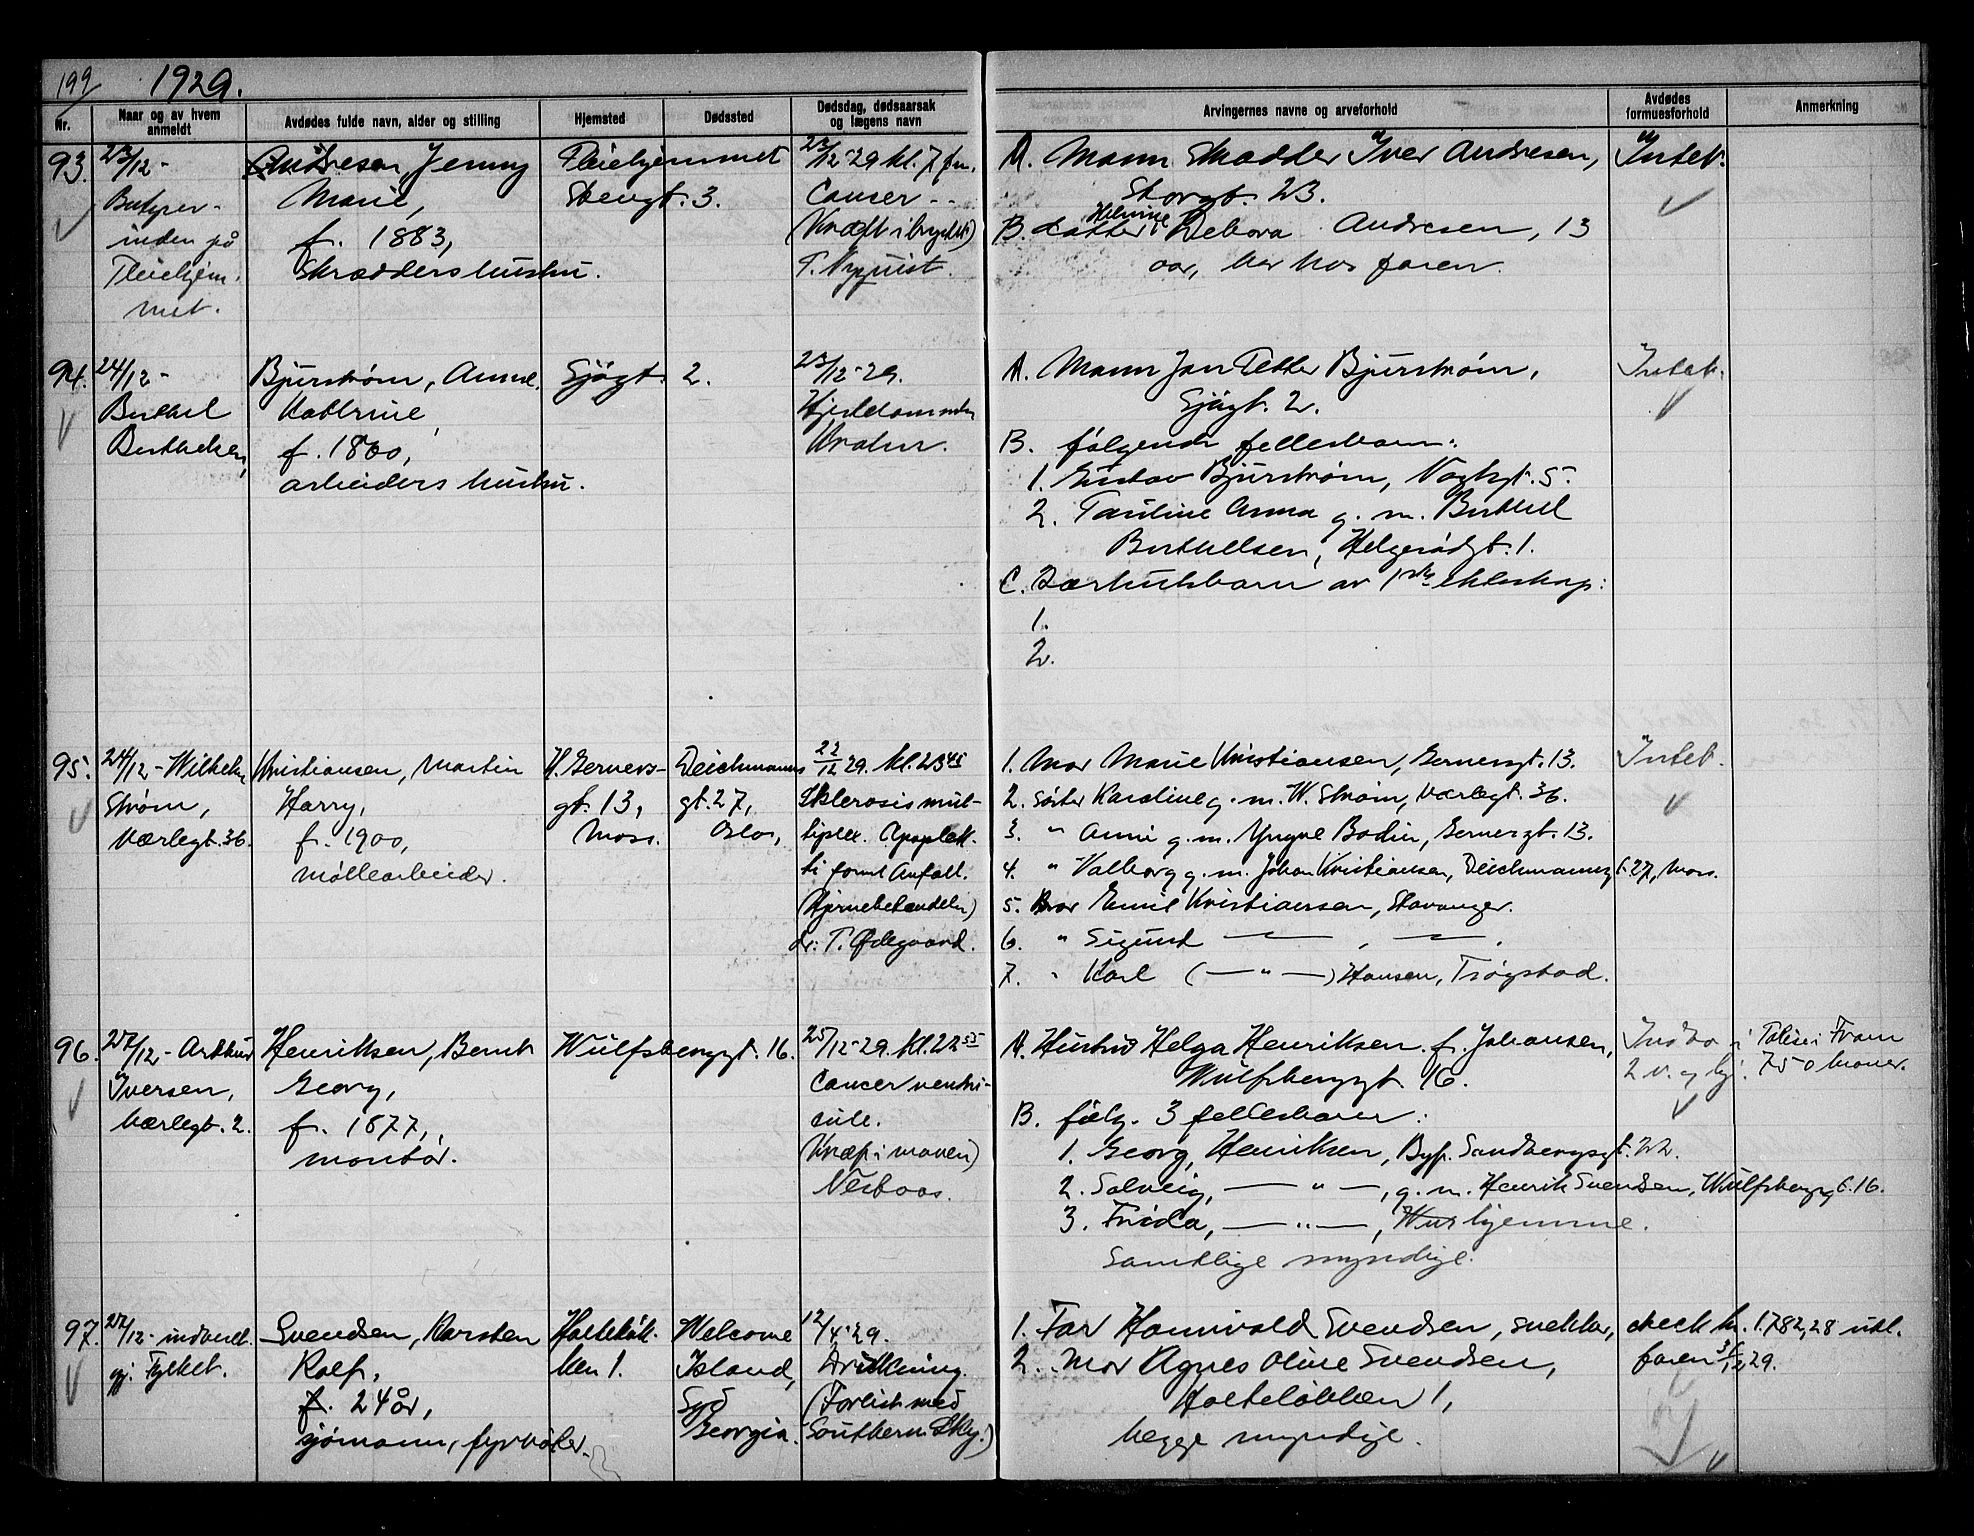 199 1929.
Nr.
Naar og av hvem anmeldt
Avdødes fulde navn, alder og stilling
Hjemsted
Dødssted
Dødsdag, dødsaarsak og lægens navn
Arvingernes navne og arveforhold
Avdødes formuesforhold
Anmerkning
93.
23/12 -
Bestyrer-
inden på
Pleiehjem-
met.
Andresen, Jenny
Marie,
f. 1883,
Skrædders hustru.
Pleiehjemmet
Stengt. 3.
23/12-29 kl. 7 fm.
Cancer
(Kræft i brystet)
T. Nyquist.
A. Mann Skrædder Iver Andresen,
Storgt. 23.
B. datter Helmine Debora Andresen, 13
aar, her hos faren.
Intet.
94.
24/12 -
Berthel
Berthelsen,
Bjurstrøm, Anne
Kathrine,
f. 1860,
arbeiders hustru.
Sjøgt. 2.
23/12-29.
Hjertelammelse
Kvalur.
A. Mann Jan Petter Bjurstrøm,
Sjøgt. 2.
B. følgende fellesbarn:
1. Gustav Bjurstrøm, Vogtsgt. 5.
2. Pauline Anna g. m. Berthel
Berthelsen, Helgerødgt. 1.
C. Særkulsbarn av 1ste ekteskap:
1.
2.
Intet.
95.
24/12 - Wilhelm
Strøm,
Værlegt. 36.
Kristiansen, Martin
Harry,
f. 1900,
møllearbeider.
H. Gerners-
gt. 13,
Moss.
Deichmanns
gt. 27,
Oslo,
22/12 29. kl. 23 45
Sklerosis mul-
tiplex. Apoplek-
ti formt Anfall.
(Hjernebetendelse)
dr: T. Ødegaard.
1. Mor Marie Kristiansen, Gernersgt. 13.
2. Søster Karoline g. m. W. Strøm, Værlegt. 36.
3. " Anni g. m. Yngve Bodin, Gernersgt. 13.
4. " Valborg g. m. Johan Kristiansen, Deichmannsgt. 27, Moss.
5. Bror Emil Kristiansen, Stavanger.
6. " Sigurd — , — .
7. " Karl ( — " — ) Hansen, Trøgstad.
Intet.
96.
27/12 - Arthur
Iversen,
Værlegt. 2.
Henriksen, Bernt
Georg,
f. 1877,
montør.
Wulfsbergsgt. 16.
25/12-29. kl. 22 55
Cancer ventri-
cule.
(Kræft i maven)
Nesboas.
A. Hustru Helga Henriksen f. Johansen,
Wulfsbergsgt. 16.
B. følg. 3 fellesbarn:
1. Georg, Henriksen, Byf. Sandbergsgt. 22.
2. Solveig, — " —, g. m. Henrik Svendsen, Wulfsbergsgt. 16.
3. Frida, — " —, hjemme.
Samtlige myndige.
Indbo i
2 v. og kj.
Polise i Fram
750 kroner.
97.
27/12 - indberet.
gj. Fylket.
Svendsen, Karsten
Rolf,
f. 24 år,
sjømann, fyrbøter.
Holteløk-
ken 1.
Welcome
Island,
Syd
Georgia.
12/4-29.
Drukning.
(Forlist med
Southern Sky.)
1. Far Hannvald Svendsen, snekker,
2. Mor Agnes Oline Svendsen,
Holteløkken 1,
begge myndige.
check kr. 1.782,28 utl.
faren 31/12 29.